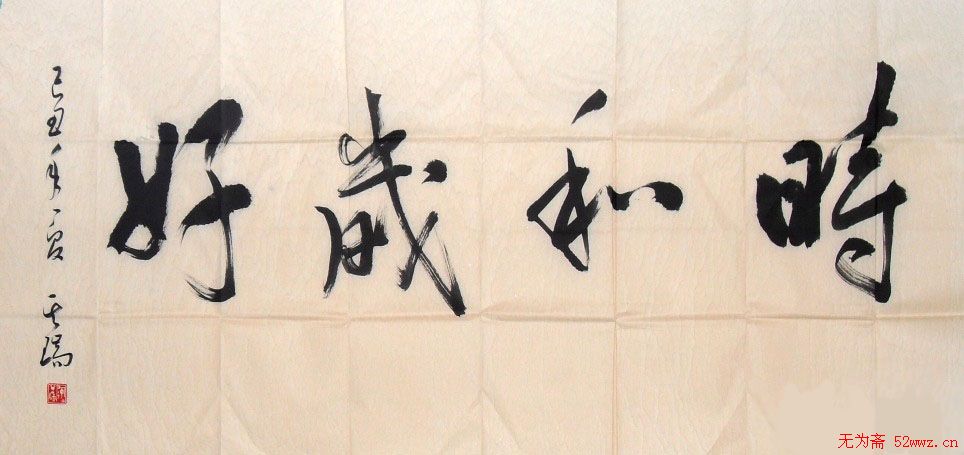 時和歲好
己丑年夏 其瑞
无为斋 52wwz.cn